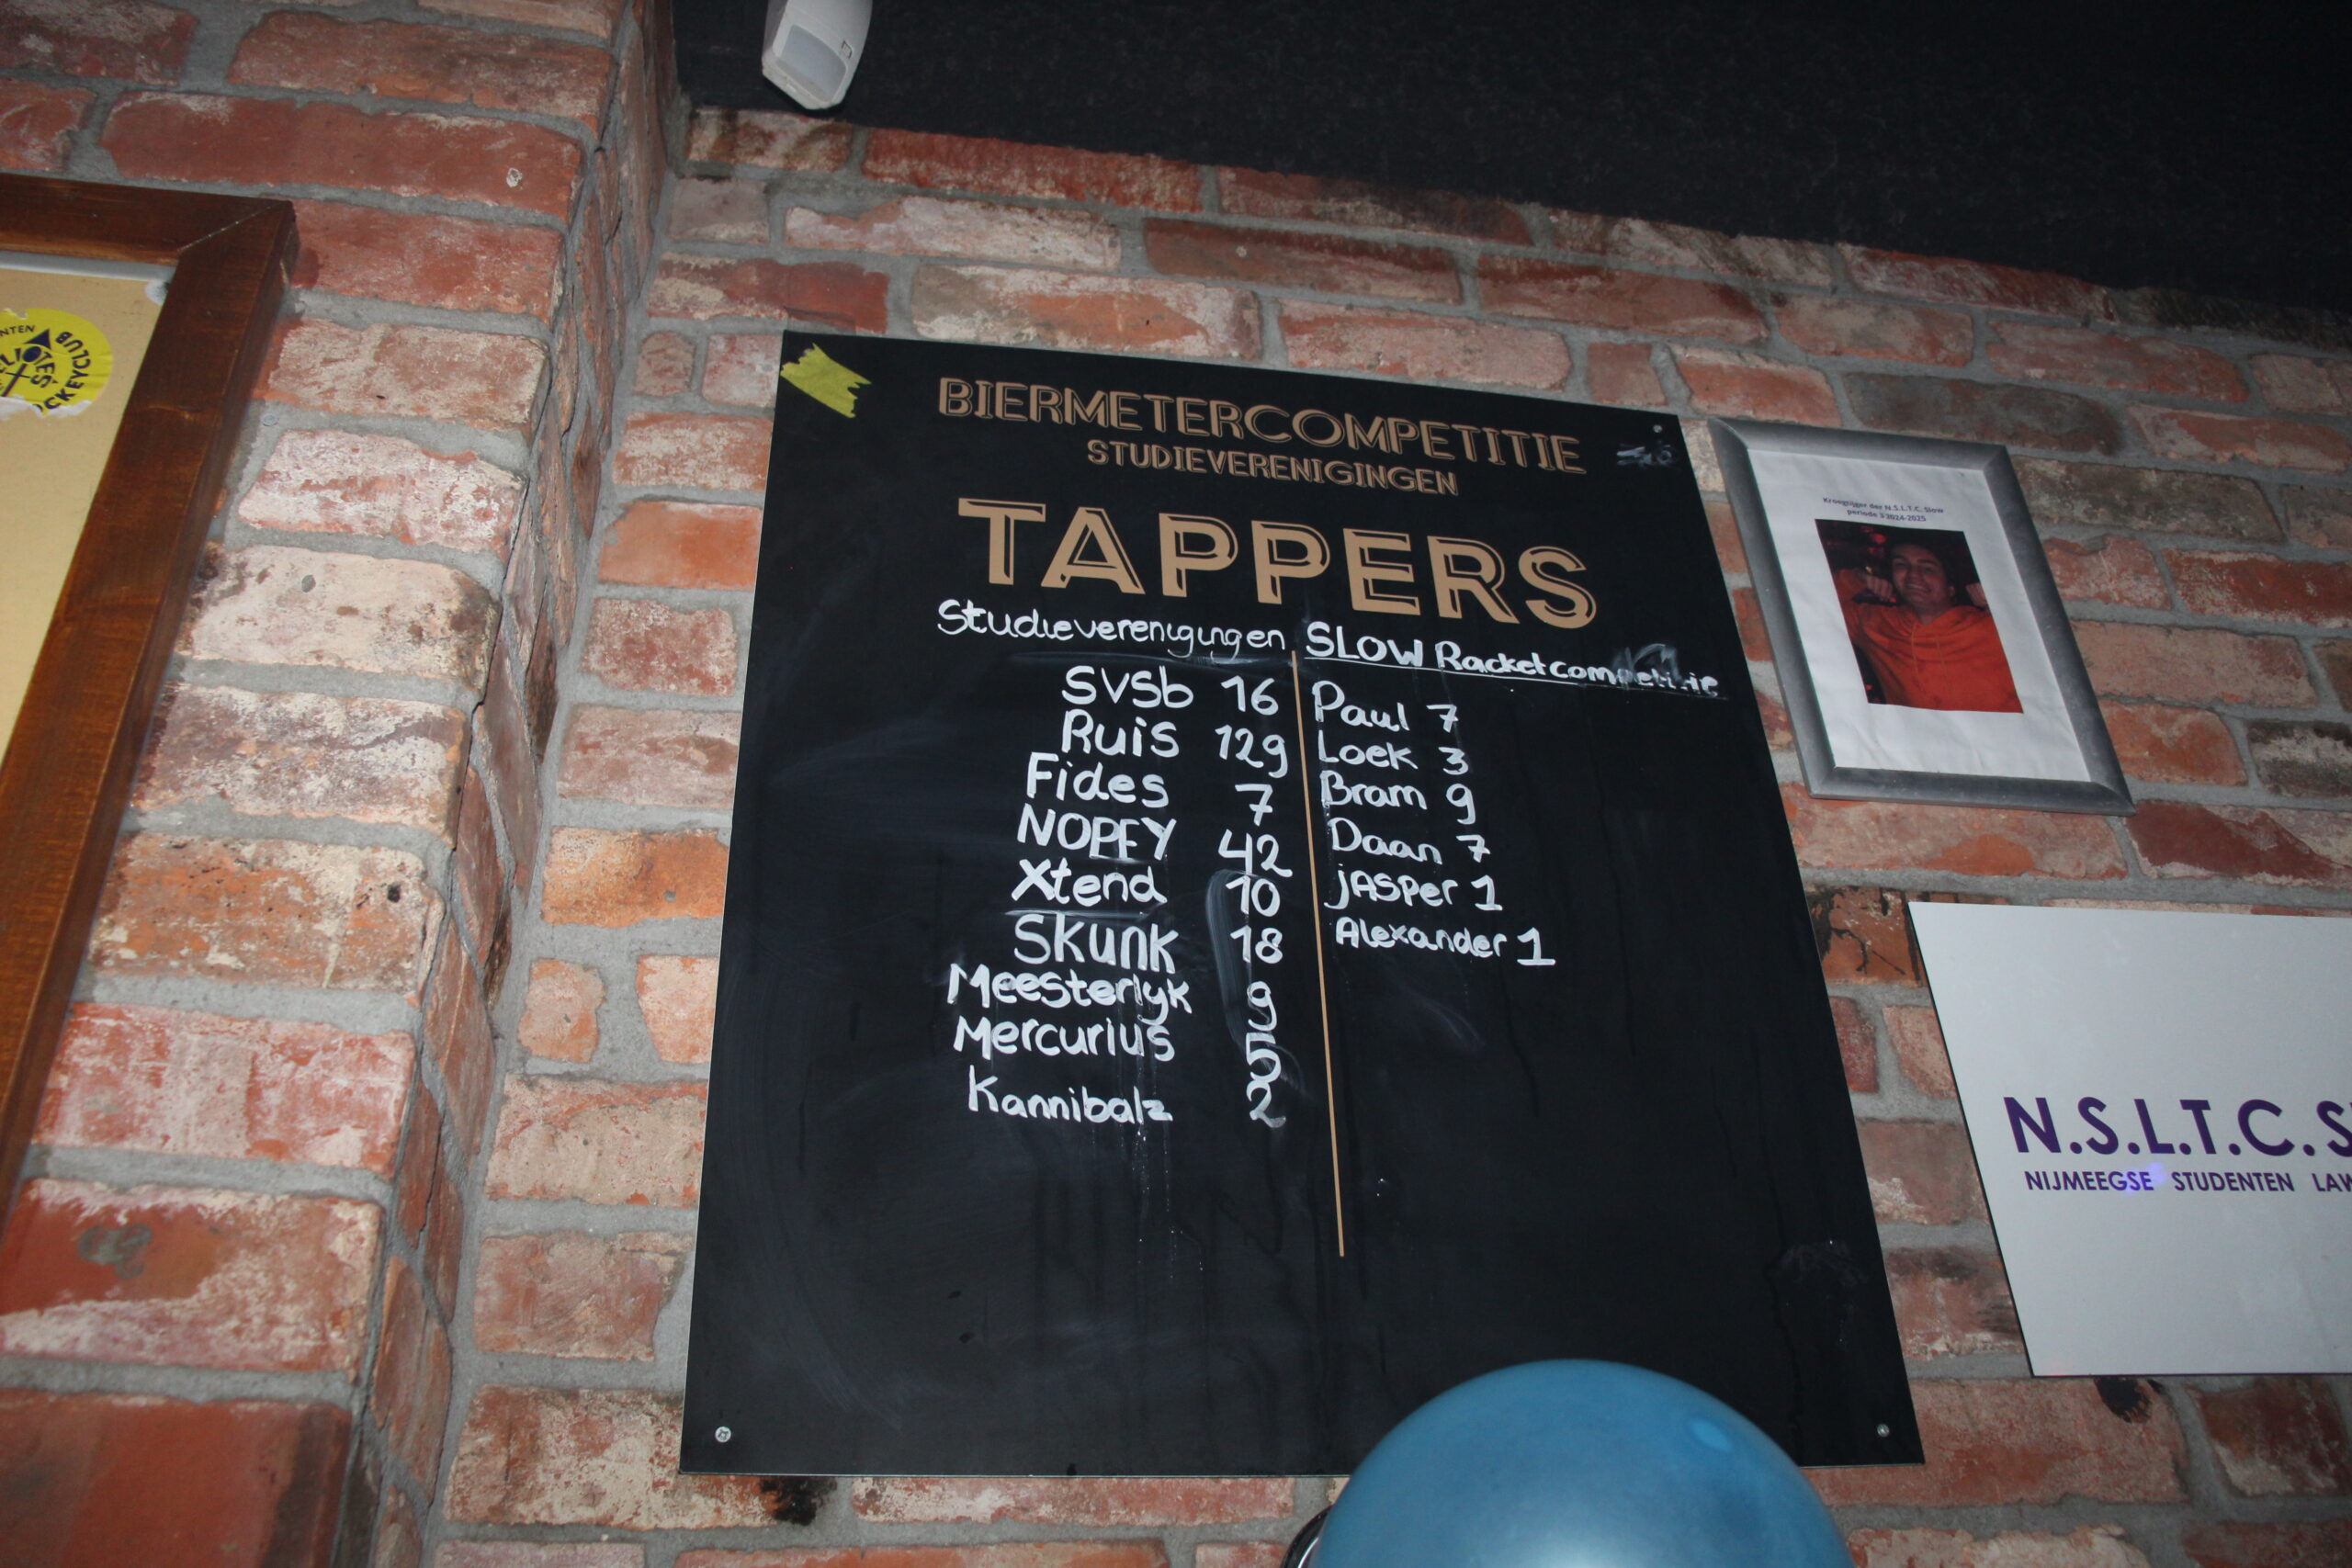 BIERMETERCOMPETITIE
STUDIEVERENIGINGEN
TAPPERS
Studieverenigingen
SVSb 16
Ruis 129
Fides 7
NOPFY 42
Xtend 10
Skunk 18
Meesterlyk 9
Mercurius 5
Kannibalz 2
SLOW Racketcompetitie
Paul 7
Loek 3
Bram 9
Daan 7
jASPer 1
Alexander 1
Kroegtijger der N.S.L.T.C. Slow
periode 3 2024-2025
N.S.L.T.C.
NIJMEEGSE STUDENTEN